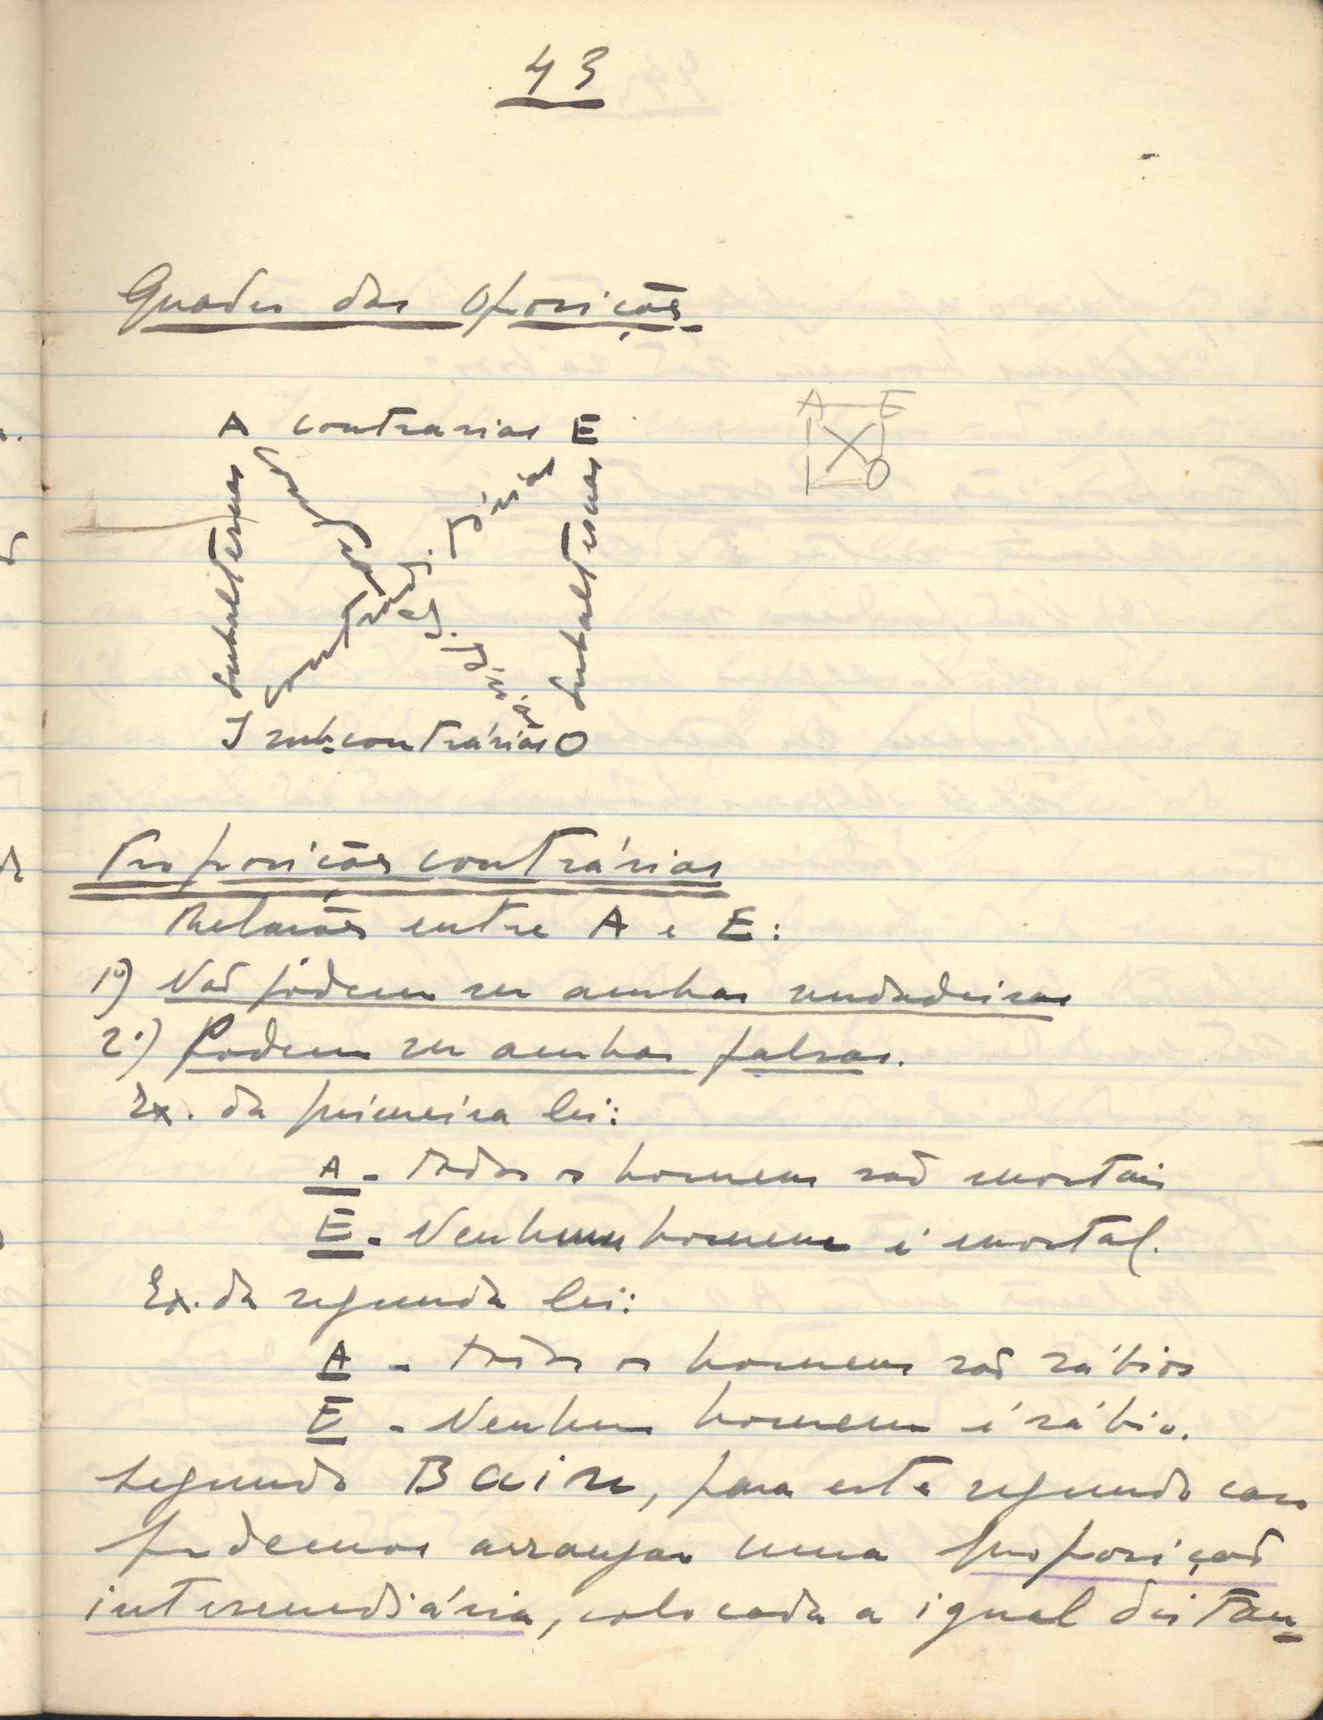 43
Quadro das Oposições
A contrarias E
A E
subalternas
contraditórias
contraditórias
subalternas
O
I sub-contrárias O
Proposições contrárias
Relações entre A e E:
1º) Não pódem ser ambas verdadeiras
2º) Podem ser ambas falsas.
Ex. da primeira lei:
A - todos os homens são mortais
E - Nenhum homem é mortal.
Ex. da segunda lei:
A - todos os homens são sábios
E - Nenhum homem é sábio.
Segundo Bain, para este segundo caso
podemos arranjar uma proposição
intermediária, colocada a igual distan-